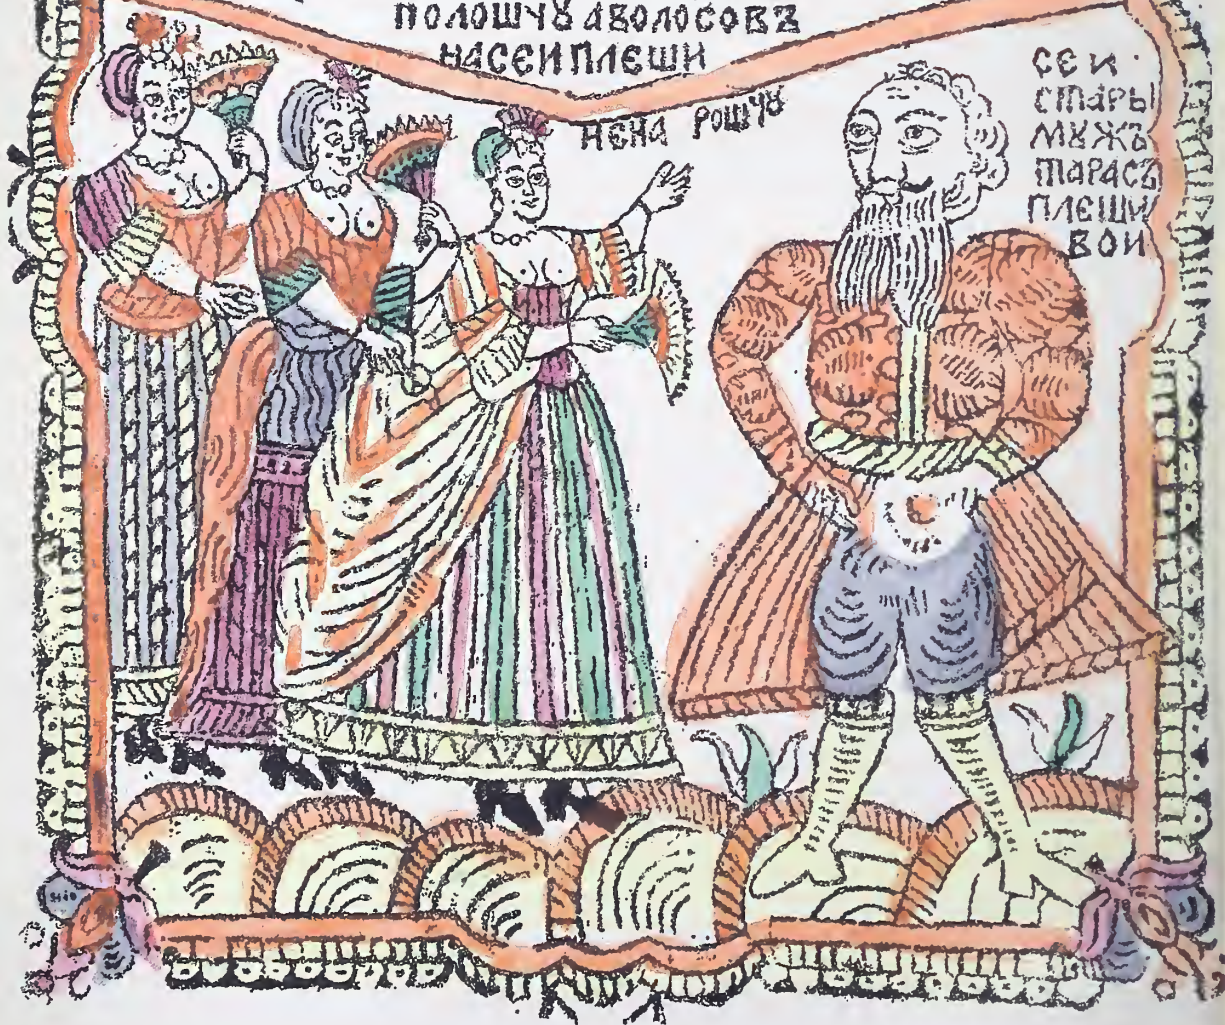 ПОЛОШЧꙊ АВОЛОСОВЪ
НАСЕИ ПЛЕШИ
НЕНА РОШЧꙊ
СЕИ
СТАРЫ
МꙊЖЪ
ТАРАСЪ
ПЛЕШИ
ВОИ